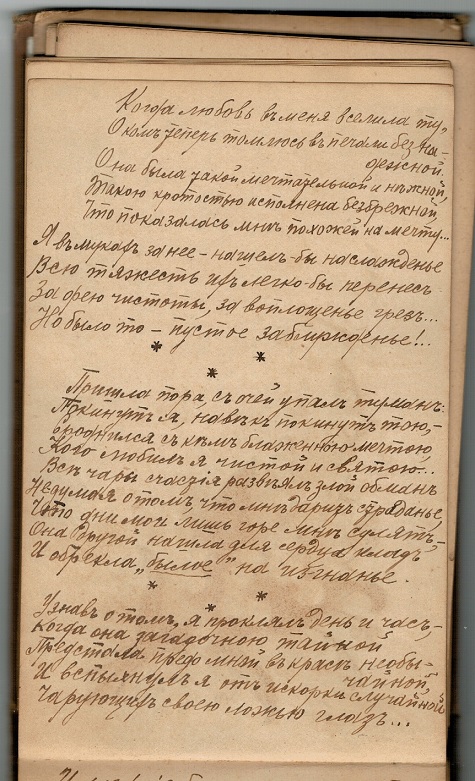 Когда любовь въ меня вселила ту,
О комъ теперь томлюсь въ печали безна-
дежной.
Она была такой мечтательной и нѣжной,
Такою кротостью исполнена безбрежной,
Что показалась мнѣ похожей на мечту...
Я въ мукахъ за нее – нашелъ-бы наслажденье
Всю тяжесть ихъ легко-бы перенесъ
За фею чистоты, за воплощенье грезъ...
Но было то – пустое заблужденье!..
* * *
Пришла пора, съ очей упалъ туманъ.
Покинутъ я, навѣкъ покинутъ тою,–
Сроднился съ кѣмъ блаженною мечтою,
Кого любилъ я чистой и святою...
Всѣ чары счастья развѣялъ злой обманъ
Не думая о томъ, что мнѣ даритъ страданье,
Что дни мои лишь горе мнѣ сулятъ–
Она другой нашла для сердца кладъ
И обрекла „былое“ на изгнанье.
* * *
Узнавъ о томъ, я проклялъ день и часъ,–
Когда она загадочною тайной
Предстала предо мной въ красѣ необы-
чайной,
И вспыхнулъ я отъ искорки случайной
Чарующихъ своею ложью глазъ...